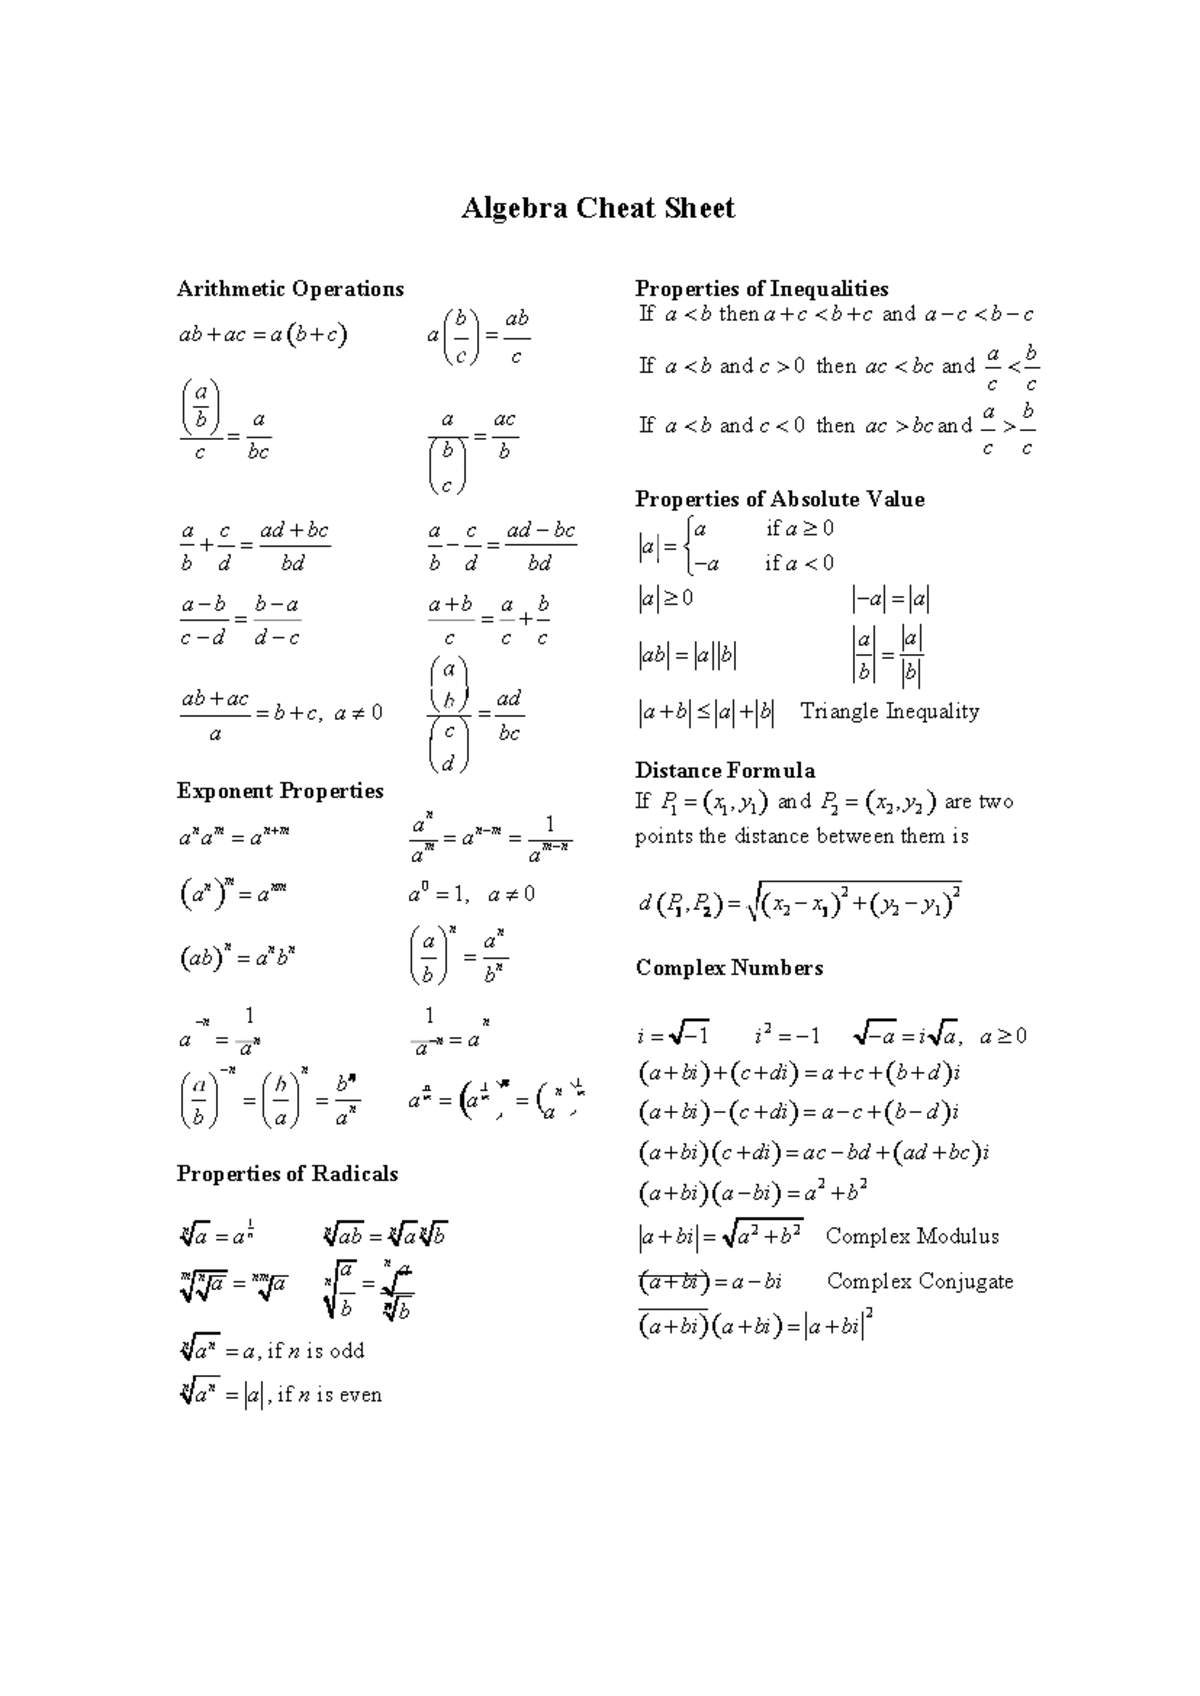 Algebra Cheat Sheet
Arithmetic Operations
ab + ac = a(b + c)    a(b/c) = ab/c
(a/b)/c = a/bc    a/(b/c) = ac/b
a/b + c/d = (ad + bc)/bd    a/b − c/d = (ad − bc)/bd
(a − b)/(c − d) = (b − a)/(d − c)    (a + b)/c = a/c + b/c
(ab + ac)/a = b + c, a ≠ 0    (a/b)/(c/d) = ad/bc
Exponent Properties
aⁿaᵐ = aⁿ⁺ᵐ    aⁿ/aᵐ = aⁿ⁻ᵐ = 1/aᵐ⁻ⁿ
(aⁿ)ᵐ = aⁿᵐ    a⁰ = 1, a ≠ 0
(ab)ⁿ = aⁿbⁿ    (a/b)ⁿ = aⁿ/bⁿ
a⁻ⁿ = 1/aⁿ    1/a⁻ⁿ = aⁿ
(a/b)⁻ⁿ = (b/a)ⁿ = bⁿ/aⁿ
Properties of Radicals
ⁿ√a = a^(1/n)    ⁿ√ab = ⁿ√a ⁿ√b
ᵐ√ⁿ√a = ⁿᵐ√a    ⁿ√(a/b) = ⁿ√a/ⁿ√b
ⁿ√aⁿ = a, if n is odd
ⁿ√aⁿ = |a|, if n is even
Properties of Inequalities
If a < b then a + c < b + c and a − c < b − c
If a < b and c > 0 then ac < bc and a/c < b/c
If a < b and c < 0 then ac > bc and a/c > b/c
Properties of Absolute Value
|a| = { a if a ≥ 0
−a if a < 0
|a| ≥ 0    |−a| = |a|
|ab| = |a||b|    |a/b| = |a|/|b|
|a + b| ≤ |a| + |b| Triangle Inequality
Distance Formula
If P₁ = (x₁, y₁) and P₂ = (x₂, y₂) are two
points the distance between them is
d(P₁, P₂) = √((x₂ − x₁)² + (y₂ − y₁)²)
Complex Numbers
i = √−1    i² = −1    √−a = i√a, a ≥ 0
(a + bi) + (c + di) = a + c + (b + d)i
(a + bi) − (c + di) = a − c + (b − d)i
(a + bi)(c + di) = ac − bd + (ad + bc)i
(a + bi)(a − bi) = a² + b²
|a + bi| = √(a² + b²) Complex Modulus
(a + bi)‾ = a − bi Complex Conjugate
(a + bi)‾(a + bi) = |a + bi|²